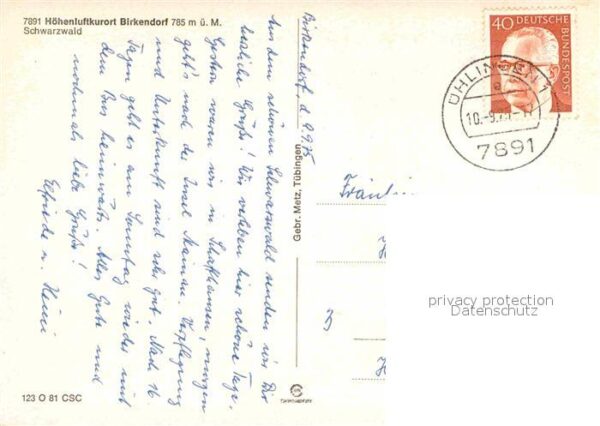 7891 Höhenluftkurort Birkendorf 785 m ü. M.
Schwarzwald
Birkendorf, d. 9.9.75
Aus dem schönen Schwarzwald senden wir Dir
herzliche Grüße! Wir verleben hier schöne Tage.
Gestern waren wir in Schaffhausen, morgen
geht's nach der Insel Mainau. Verpflegung
und Unterkunft sind sehr gut. Nach 16
Tagen geht es am Sonntag wieder mit
dem Bus heimwärts. Alles Gute und
nochmals liebe Grüße!
Elfriede u. Heini
Gebr. Metz, Tübingen
40 DEUTSCHE
BUNDESPOST
ÜHLINGEN 1
a
10.-9.75
7891
Fräulein
privacy protection
Datenschutz
123 O 81 CSC